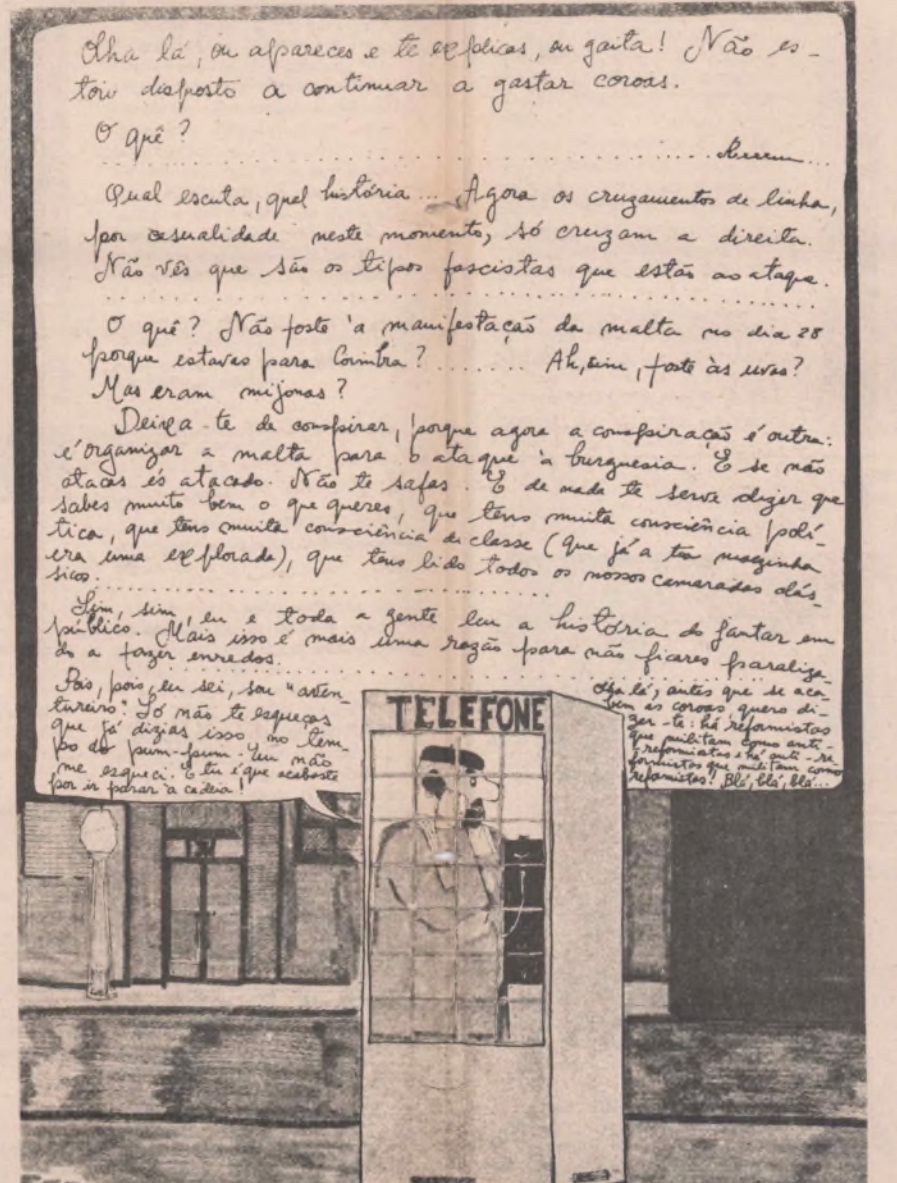 Olha lá, ou apareces e te explicas, ou gaita! Não es-
tou disposto a continuar a gastar coroas.
O quê?
Qual escuta, qual história.... Agora os cruzamentos de linha,
por casualidade neste momento, só cruzam a direita.
Não vês que são os tipos fascistas que estão ao ataque.
O quê? Não foste à manifestação da malta no dia 28
porque estavas para Coimbra? ........ Ah, sim, foste às uvas?
Mas eram mijonas?
Deixa-te de conspirar, porque agora a conspiração é outra:
é organizar a malta para o ataque à burguesia. E se não
atacas és atacado. Não te safas. E de nada te serve dizer que
sabes muito bem o que queres, que tens muita consciência polí-
tica, que tens muita consciência de classe (que já a tua
era uma explorada), que tens lido todos os nossos camaradas clás-
sicos.
Sim, sim, eu e toda a gente leu a história do jantar em
público. Mais isso é mais uma razão para não ficares paraliza-
do a fazer enredos.
Pois, pois, eu sei, sou "aven-
tureiro". Só não te esqueças
que já dizias isso no tem-
po do pum-pum. Eu não
me esqueci. E tu é que acabaste
por ir parar à cadeia!
Olha lá, antes que se aca-
bem as coroas quero di-
zer-te: há reformistas
que militam como anti-
-reformistas e há anti-re-
formistas que militam como
reformistas! Blá, blá, blá...
TELEFONE